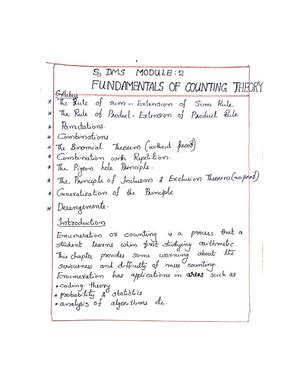 S3 DMS MODULE:2
FUNDAMENTALS OF COUNTING THEORY
Syllabus
* The Rule of sum - Extension of Sum Rule.
* The Rule of Product - Extension of Product Rule
* Permutations.
* Combinations
* The Binomial Theorem (without proof)
* Combination with Repetition.
* The Pigeon hole Principle.
* The Principle of Inclusion & Exclusion Theorem (no proof)
* Generalization of the Principle.
* Derangements.
Introduction
Enumeration or counting is a process that a
student learns when first studying arithmetic.
This chapter provides some warning about the
seriousness and difficulty of mere counting.
Enumeration has applications in areas such as
• coding theory
• probability & statistics
• analysis of algorithms etc.